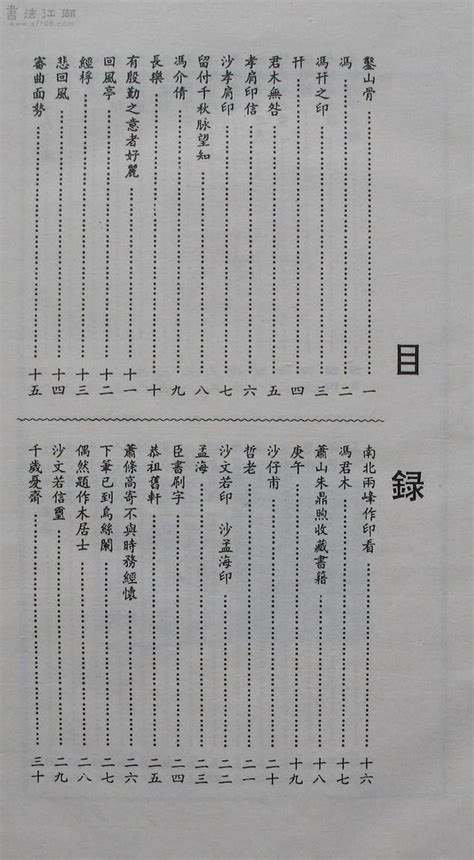 書法江湖
目録
鑿山骨 一
馮 二
馮幵之印 三
幵 四
君木無咎 五
孝肩印信 六
沙孝肩印 七
留付千秋脉望知 八
馮介倩 九
長樂 十
有殷勤之意者好麗 十一
回風亭 十二
經桴 十三
悲回風 十四
審曲面勢 十五
南北兩峰作印看 十六
馮君木 十七
蕭山朱鼎煦收藏書籍 十八
庚午 十九
沙仔甫 二十
哲老 二一
沙文若印 沙孟海印 二二
孟海 二三
臣書刷字 二四
恭祖舊軒 二五
蕭條高寄不與時務經懷 二六
下筆已到烏絲闌 二七
偶然題作木居士 二八
沙文若信璽 二九
千歲憂齋 三十